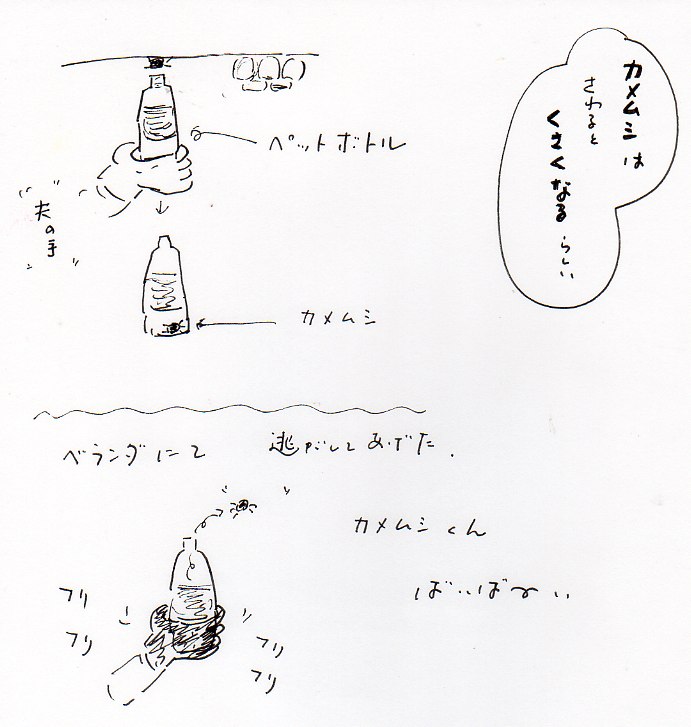 カメムシは
さわると
くさくなるらしい
ペットボトル
夫の手
カメムシ
ベランダにて 逃がしてあげた.
カメムシくん
ばいばーい
フリ
フリ
フリ
フリ